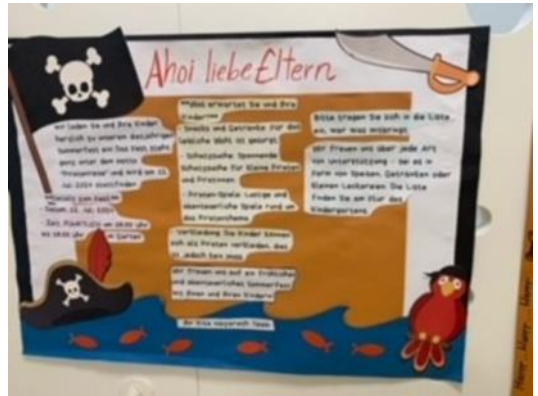 Ahoi liebe Eltern
wir laden Sie und Ihre Kinder
herzlich zu unserem diesjährigen
Sommerfest ein. Das Fest steht
ganz unter dem Motto
"Piratenreise" und wird am 12.
Juli 2024 stattfinden
**Details zum Fest**
- Datum: 12. Juli 2024
- Zeit:
bis 18:00 Uhr im Garten
**Was erwartet Sie und Ihre
Kinder**
- Snacks und Getränke: Für das
leibliche Wohl ist gesorgt.
- Schatzsuche: Spannende
Schatzsuche für kleine Piraten
und Piratinnen.
- Piraten-Spiele: Lustige und
abenteuerliche Spiele rund um
das Piratenthema
- Verkleidung: Die Kinder können
sich als Piraten verkleiden, dies
ist jedoch kein Muss
Wir freuen uns auf ein fröhliches
und abenteuerliches Sommerfest
mit Ihnen und Ihren Kindern!
Ihr Kita Team
Bitte tragen Sie sich in die Liste
ein, wer was mitbringt.
Wir freuen uns über jede Art
von Unterstützung - sei es in
Form von Speisen, Getränken oder
kleinen Leckereien. Die Liste
finden Sie am Flur des
Kindergartens.